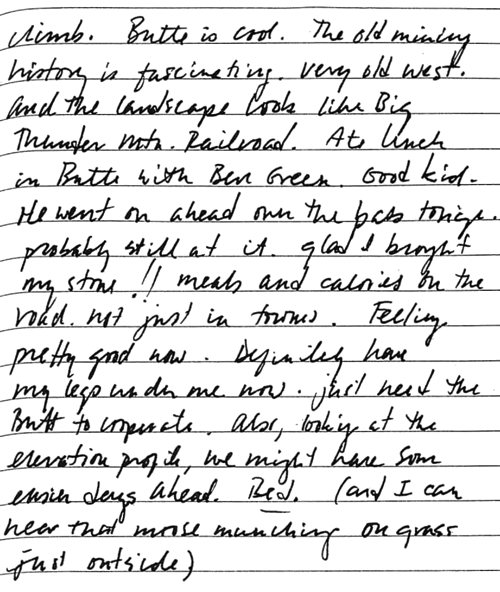 climb. Butte is cool. The old mining
history is fascinating. very old west.
And the landscape looks like Big
Thunder Mtn. Railroad. Ate lunch
in Butte with Ben Green. Good kid.
He went on ahead over the pass tonight.
probably still at it. glad I brought
my stove!! meals and calories on the
road. not just in towns. Feeling
pretty good now. Definitely have
my legs under me now. just need the
Butt to cooperate. Also, looking at the
elevation profile, we might have some
easier days ahead. Bed. (and I can
hear that moose munching on grass
just outside)